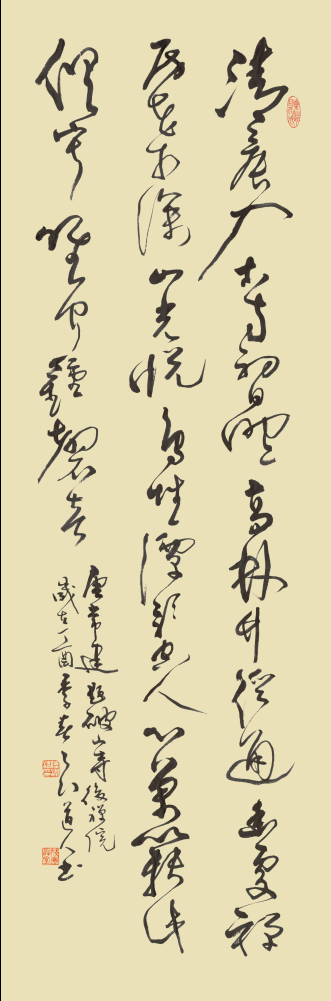 清晨入古寺初日照高林竹徑通幽處禪
房花木深山光悅鳥性潭影空人心萬籟此
俱寂惟聞鐘磬音
唐常建題破山寺後禪院
歲在丁酉季春道人書